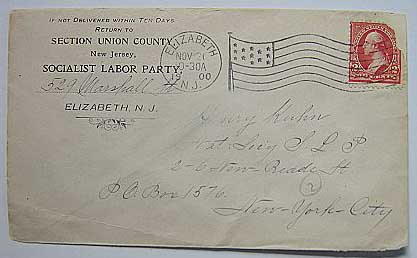 IF NOT DELIVERED WITHIN TEN DAYS
RETURN TO
SECTION UNION COUNTY
New Jersey,
SOCIALIST LABOR PARTY,
529 Marshall St
ELIZABETH, N. J.
ELIZABETH
NOV 2
9-30A
1900
N.J.
TWO CENTS
2
2
Henry Kuhn
Nat. Secy S. L. P
2-6 New Reade St
P.O. Box 1576
2
New-York-City